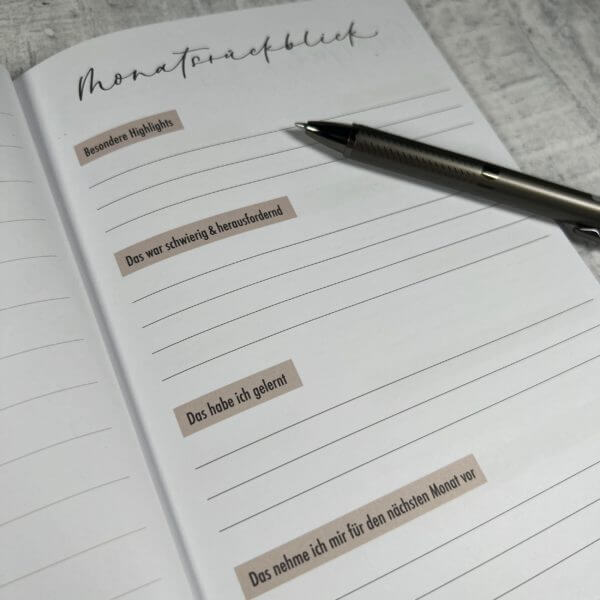 Monatsrückblick
Besondere Highlights
Das war schwierig & herausfordernd
Das habe ich gelernt
Das nehme ich mir für den nächsten Monat vor